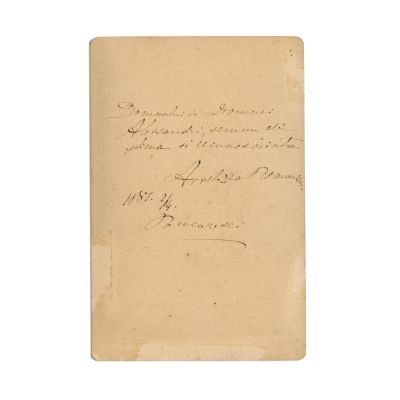 Domnului si Domnei
Alessandri, semn de
stima si recunoscinta
Aristizza Romanescu
1887. 2/4.
Bucuresci